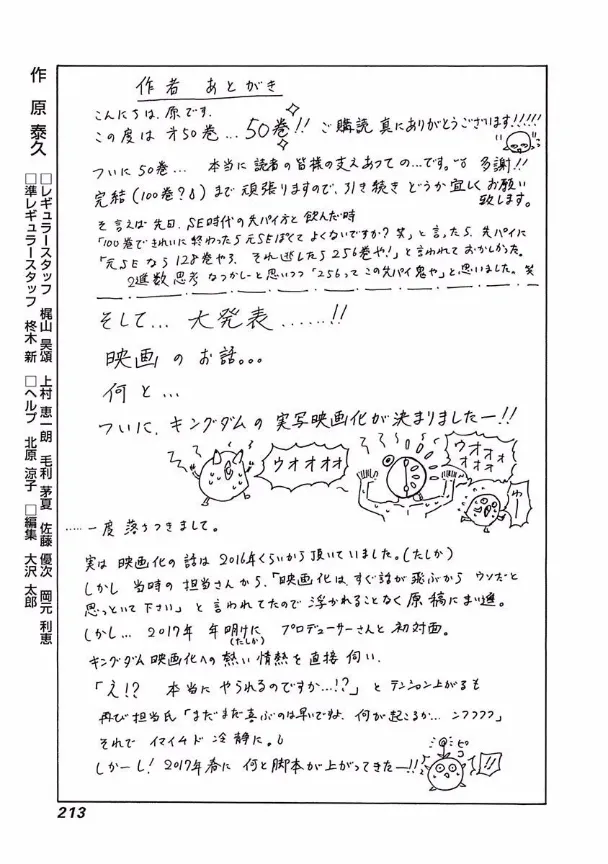 作 原 泰久
□レギュラースタッフ 梶山 昊頌 上村 恵一朗 毛利 茅夏 佐藤 優次 岡元 利恵
□準レギュラースタッフ 柊木 新 □ヘルプ 北原 涼子 □編集 大沢 太郎
作者 あとがき
こんにちは、原です。
この度は 才50巻…50巻!! ご購読 真にありがとうございます!!!!!
ついに50巻… 本当に読者の皆様の支えあっての…です。 多謝!!
完結(100巻?)まで 頑張りますので、引き続き どうか宜しくお願い
致します。
そ言えば先日、SE時代の先パイ方と飲んだ時
「100巻できれいに終わったら元SEぽくてよくないですか?笑」と言ったら、先パイに
「元SEなら128巻やろ、それ逃したら256巻や!」と言われておかしかった。
2進数思考 なつかしーと思いつつ「256ってこの先パイ鬼や」と思いました。笑
そして… 大発表……!!
映画のお話。。。
何と…
ついに、キングダムの実写映画化が決まりましたー!!
ウオオオオ
ウオォォォォ
ゆー
……一度落ちつきまして。
実は 映画化の話は2016年くらいから頂いていました。(たしか)
しかし 当時の担当さんから、「映画化は、すぐ話が飛ぶから ウソだと
思っといて下さい」と言われてたので 浮かれることなく原稿にまい進。
しかし… 2017年 年明けに(たしか) プロデューサーさんと初対面。
キングダム映画化への熱い情熱を直接伺い、
「え!? 本当にやられるのですか…!?」とテンション上がるも
再び担当氏「まだまだ喜ぶのは早いですよ、何が起こるか… ンフフフフ」
それで イマイチド 冷静に。
しかーし! 2017年春に 何と脚本が上がってきたー!!
ピコ
!!
213